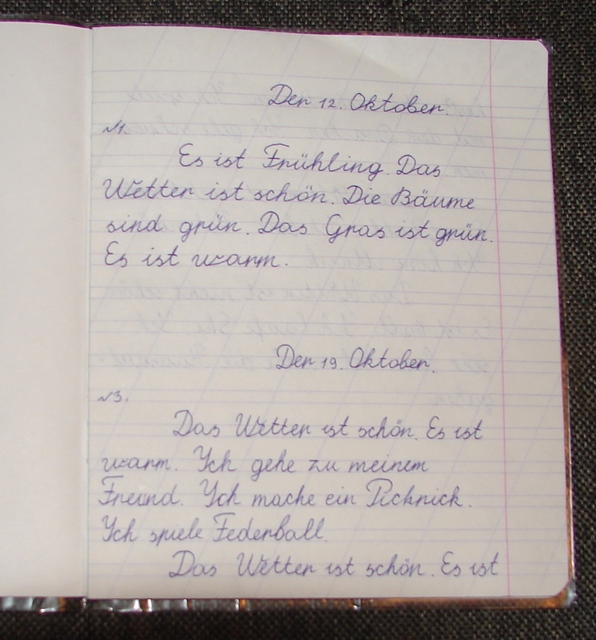 Der 12. Oktober.
№1.
Es ist Frühling. Das
Wetter ist schön. Die Bäume
sind grün. Das Gras ist grün.
Es ist warm.
Der 19. Oktober.
№3.
Das Wetter ist schön. Es ist
warm. Ich gehe zu meinem
Freund. Ich mache ein Pichnick.
Ich spiele Federball.
Das Wetter ist schön. Es ist